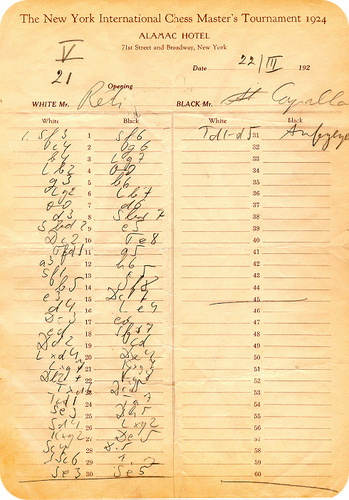 The New York International Chess Master's Tournament 1924
ALAMAC HOTEL
71st Street and Broadway, New York
V
21
Date 22/III 192
Opening
WHITE Mr. Reti BLACK Mr.
White Black White Black
1. Sf3 1 Sf6 Td1-d5 31
c4 2 g6 32
b4 3 Lg7 33
Lb2 4 0-0 34
g3 5 b6 35
Lg2 6 Lb7 36
0-0 7 d6 37
d3 8 Sbd7 38
Sbd2 9 e5 39
Dc2 10 Te8 40
Tfd1 11 a5 41
a3 12 h6 42
Sf1 13 c5 43
b5 14 Sf8 44
e3 15 Dc7 45
d4 16 Le4 46
17 47
18 48
Dd2 19 cd 49
Lxd4 20 Dxc4 50
Lxg7 21 Kxg7 51
22 52
Txd6 23 Dc5 53
Tad1 24 Ta7 54
Se3 25 Dh5 55
Sd4 26 Lxg2 56
Kxg2 27 De5 57
Sc4 28 58
Sc6 29 59
Se3 30 Se5 60